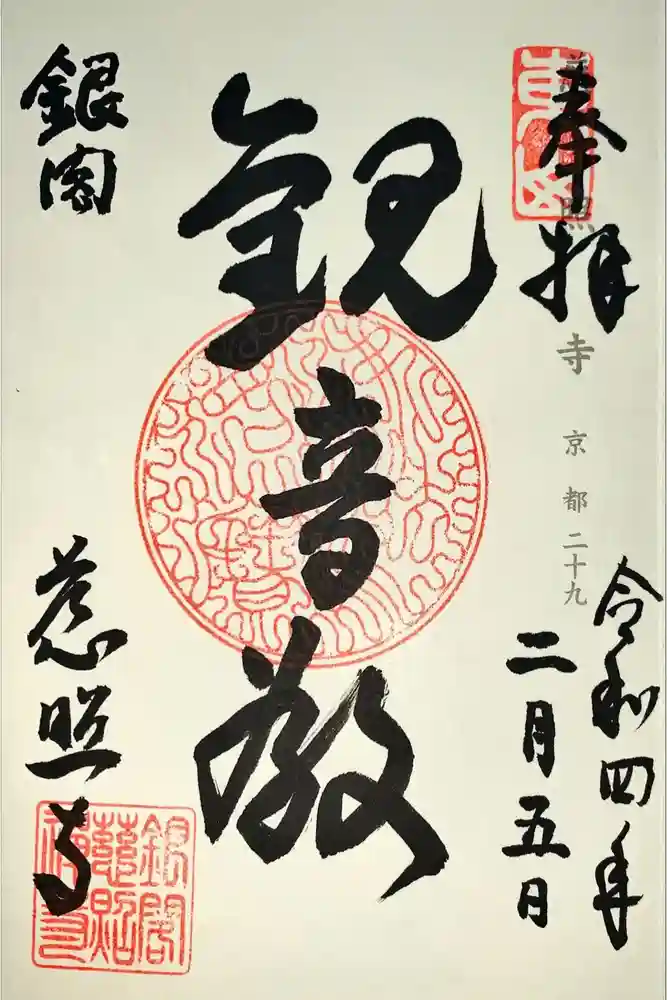 奉拝
照寺 京都二十九
令和四年
二月五日
観音殿
銀閣
慈照寺
銀閣
慈照